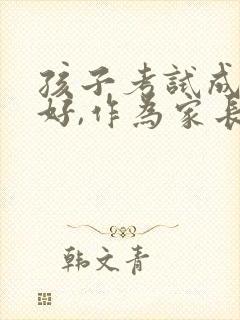 孩子考試成
好,作為家長
韩文青